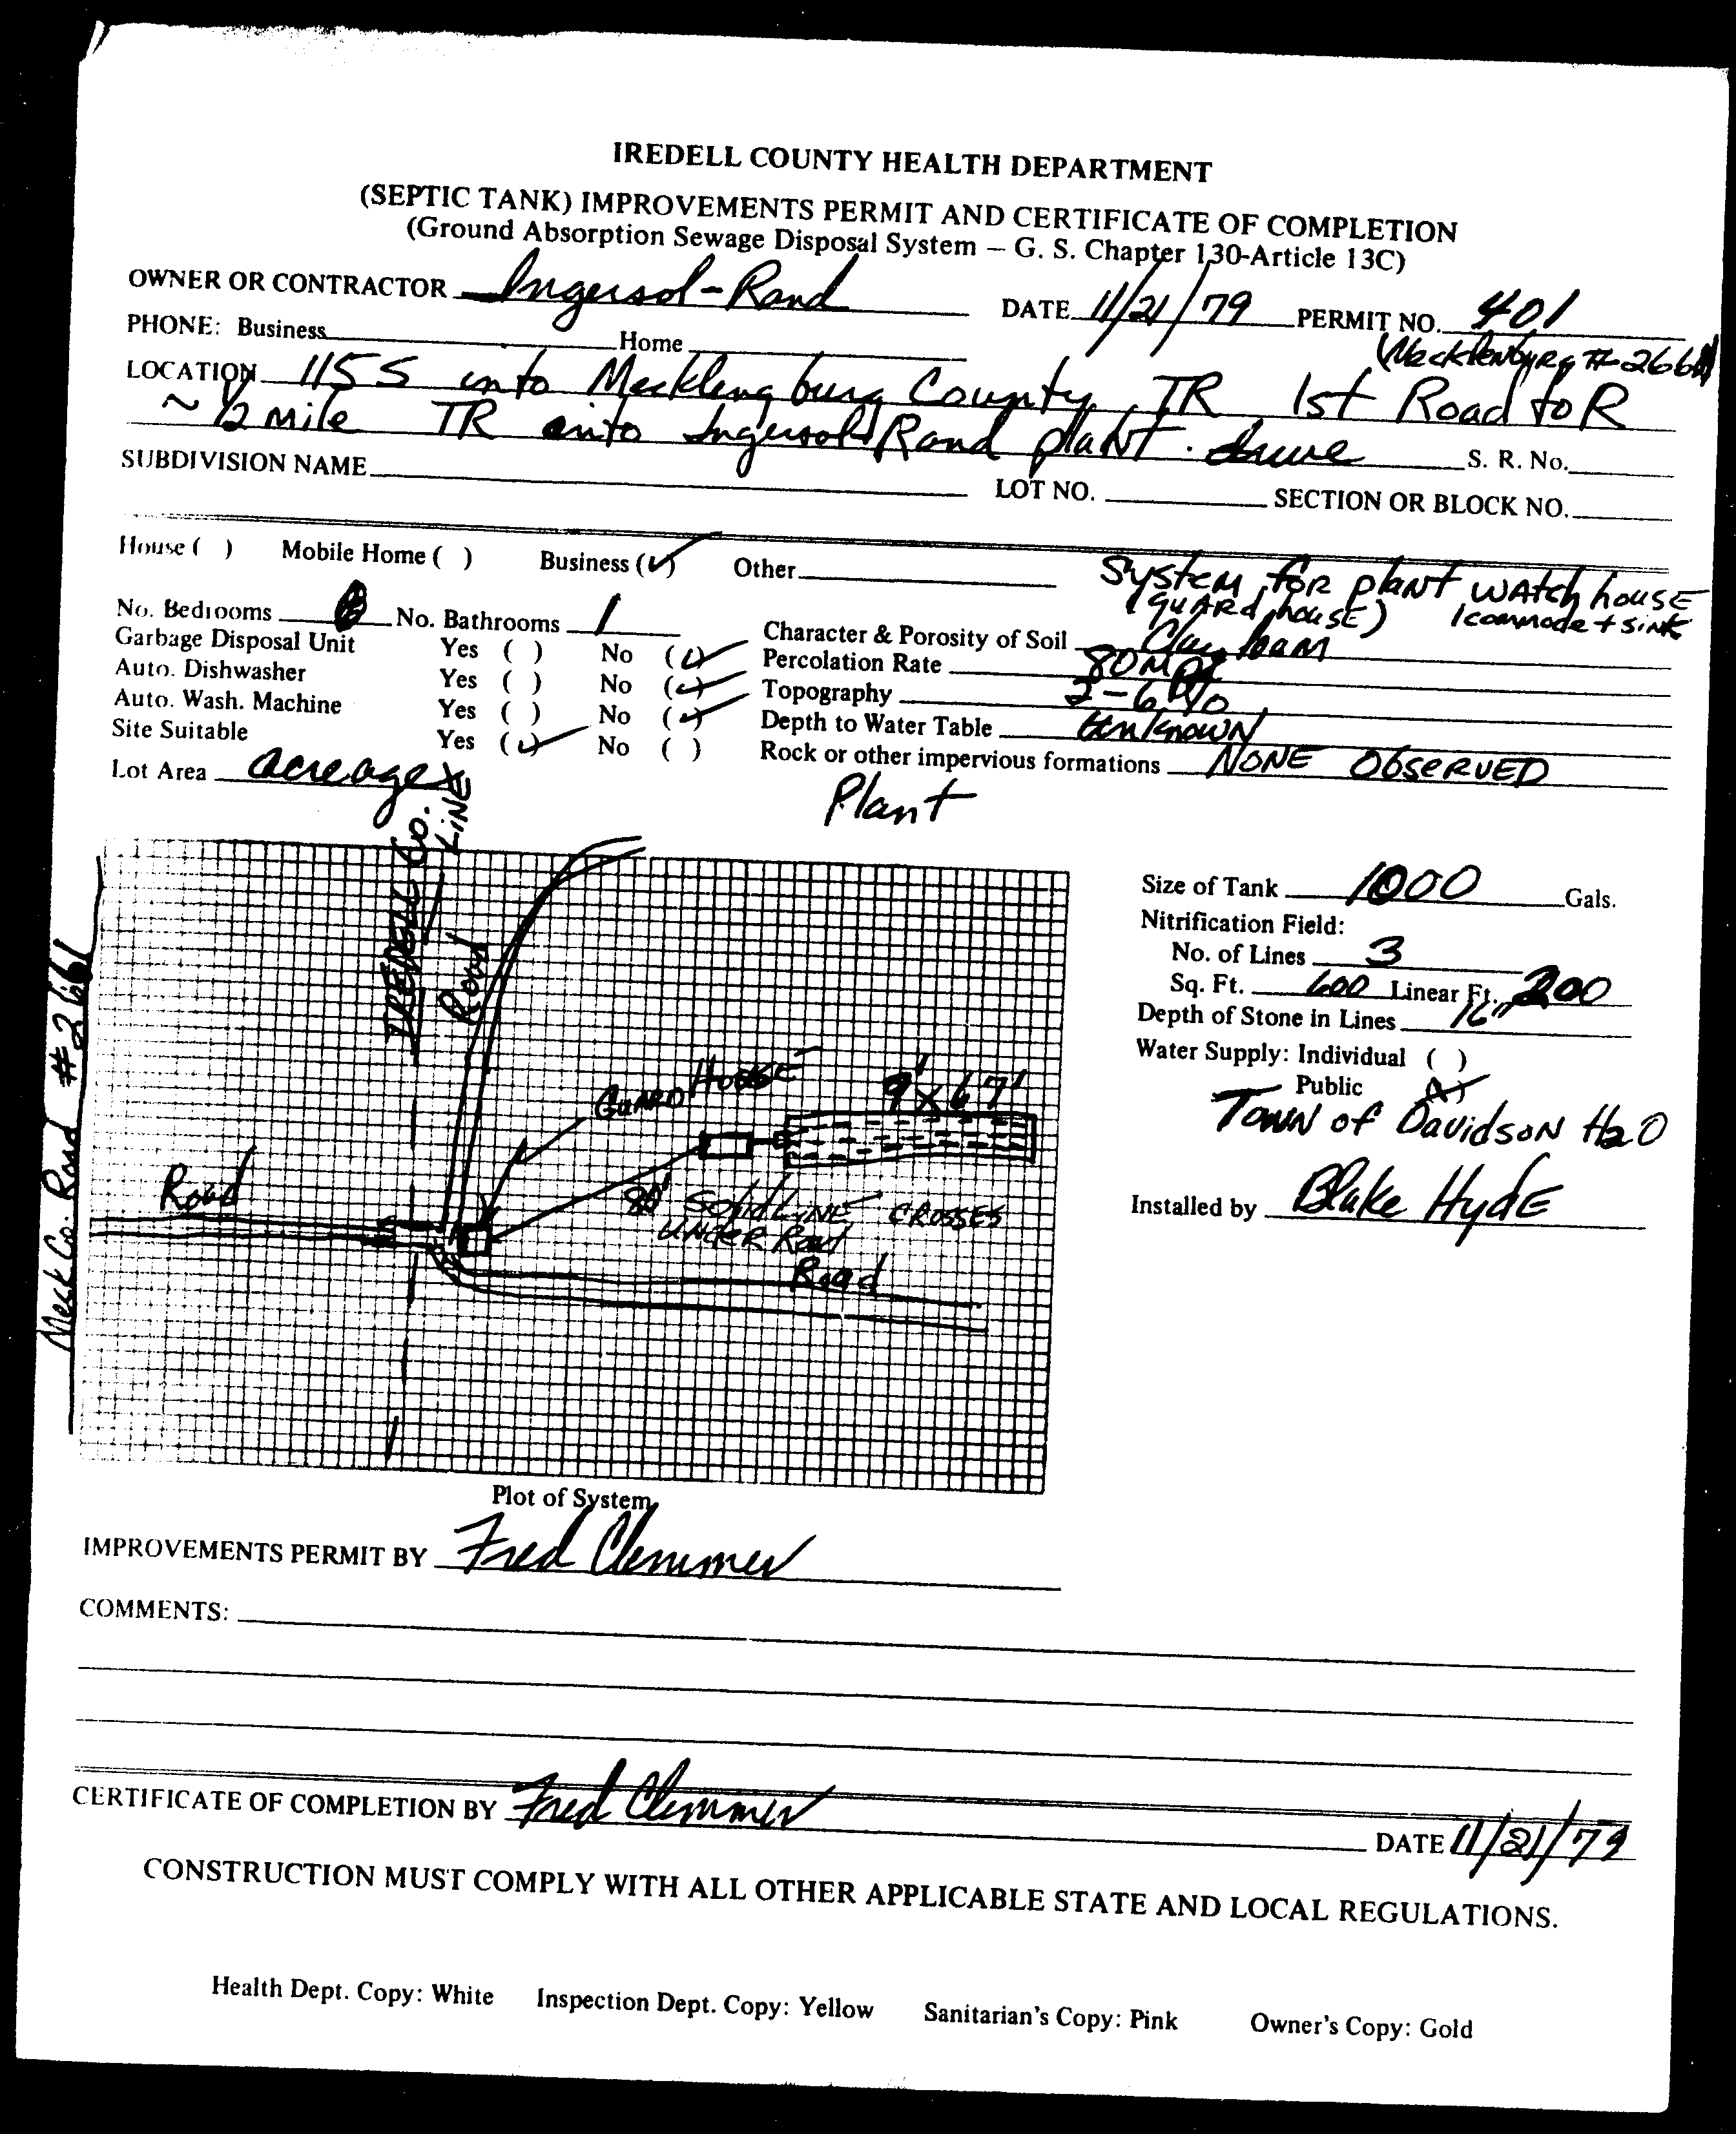 IREDELL COUNTY HEALTH DEPARTMENT
(SEPTIC TANK) IMPROVEMENTS PERMIT AND CERTIFICATE OF COMPLETION
(Ground Absorption Sewage Disposal System – G. S. Chapter 130-Article 13C)
OWNER OR CONTRACTOR Ingersol-Rand DATE 11/21/79 PERMIT NO. 401
PHONE: Business Home (Mecklenburg #2661)
LOCATION 115 S into Mecklengburg County TR 1st Road to R
~ 1/2 mile TR onto Ingersol Rand plaNT. drive S. R. No.
SUBDIVISION NAME LOT NO. SECTION OR BLOCK NO.
House ( ) Mobile Home ( ) Business (✓) Other
System for plant watch house
(guard house) 1 commode + sink
No. Bedrooms No. Bathrooms 1 Character & Porosity of Soil Clay loam
Garbage Disposal Unit Yes ( ) No (✓) Percolation Rate 80 MPI
Auto. Dishwasher Yes ( ) No (✓) Topography 2-6 %
Auto. Wash. Machine Yes ( ) No (✓) Depth to Water Table Unknown
Site Suitable Yes (✓) No ( ) Rock or other impervious formations NONE ObSERVED
Lot Area acreage
Plant
IREDELL Co. LINE
Road
Meck Co. Road #2661
GUARD HOUSE
9' x 67'
Road
80' Solid LINE CROSSES
UNDER Road
Road
Size of Tank 1000 Gals.
Nitrification Field:
No. of Lines 3
Sq. Ft. 600 Linear Ft. 200
Depth of Stone in Lines 16"
Water Supply: Individual ( )
Public (✓)
TOWN of DavidsoN H2O
Installed by Blake HydE
Plot of System
IMPROVEMENTS PERMIT BY Fred Clemmer
COMMENTS:
CERTIFICATE OF COMPLETION BY Fred Clemmer
DATE 11/21/79
CONSTRUCTION MUST COMPLY WITH ALL OTHER APPLICABLE STATE AND LOCAL REGULATIONS.
Health Dept. Copy: White Inspection Dept. Copy: Yellow Sanitarian's Copy: Pink Owner's Copy: Gold